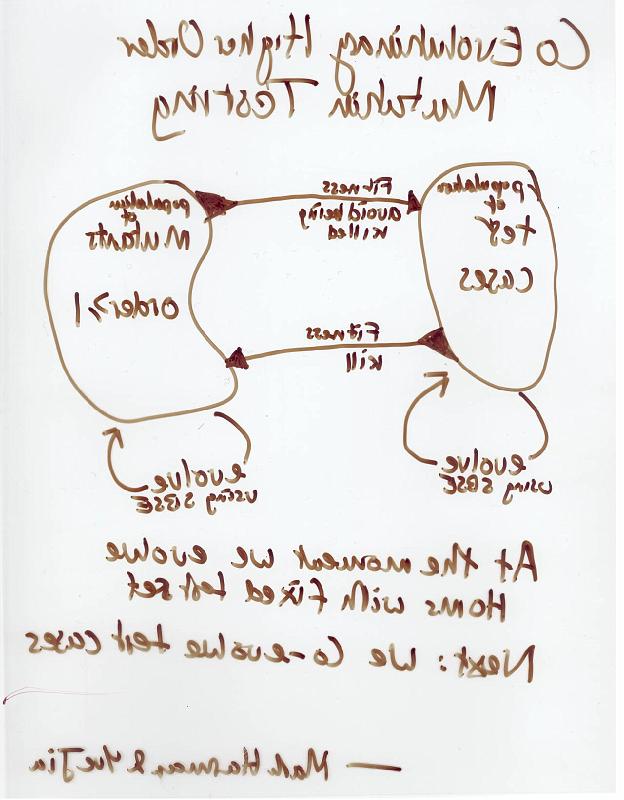 Co Evolutionary Higher Order
Mutation Testing
population
of
test
cases
Fitness
avoid being
killed
population
of
Mutants
order≥1
Fitness
kill
evolve
using SBSE
evolve
using SBSE
At the moment we evolve
Homs with fixed test set
Next: we Co-evolve test cases
— Mark Harman & Yue Jia